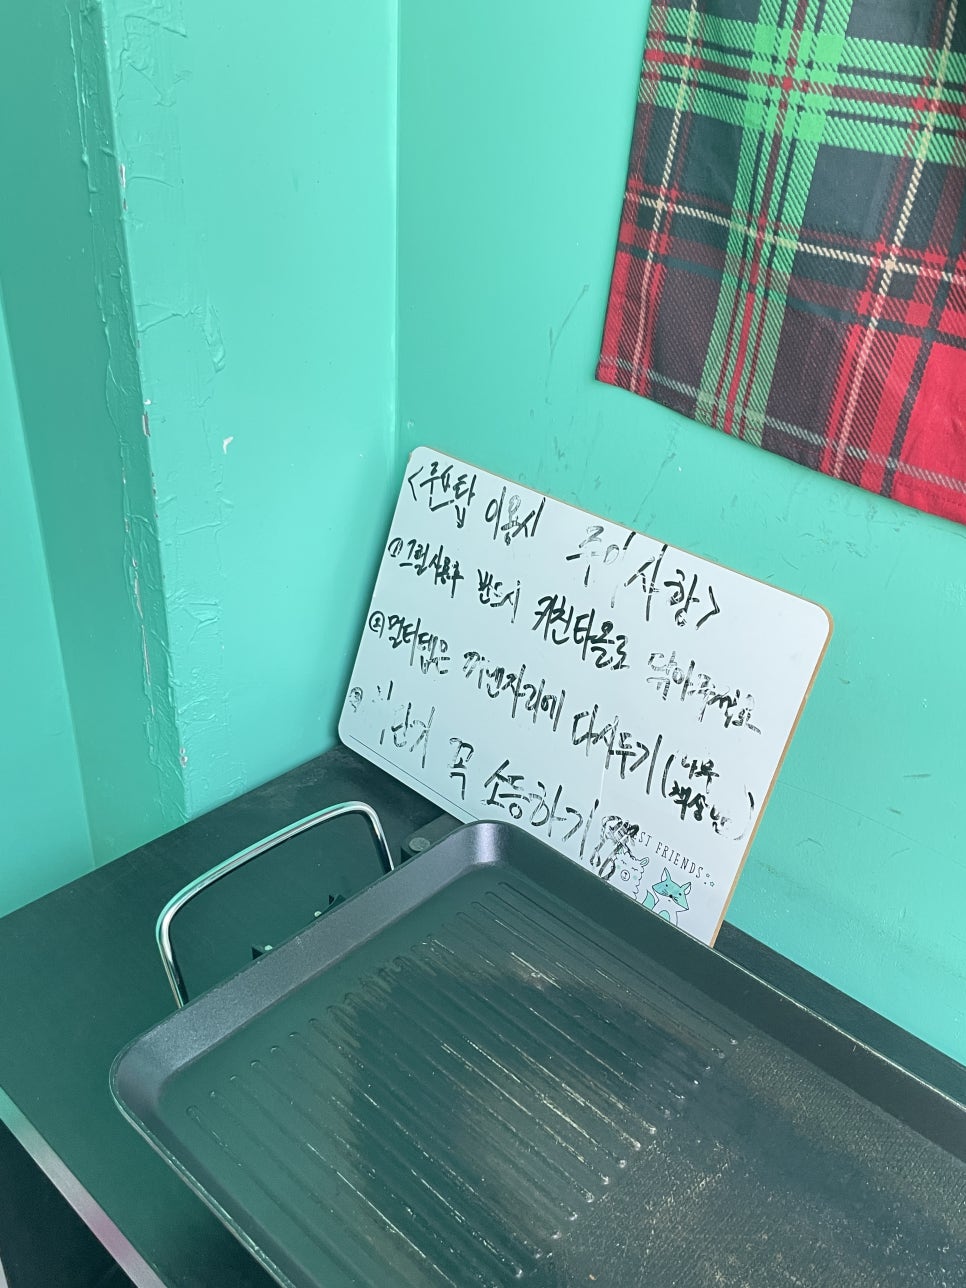 <루프탑 이용시 주의사항>
① 그릴사용후 반드시 키친타올로 닦아주세요
② 멀티탭은 꺼낸자리에 다시두기(나무
책상
③ 꼭 소등하기
BEST FRIENDS